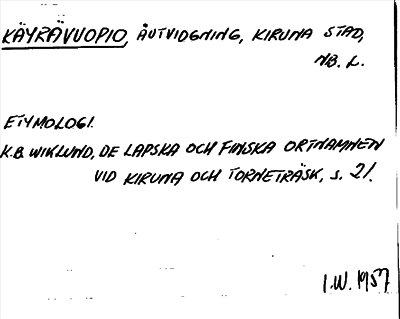 KÄYRÄVUOPIO, ÅUTVIDGNING, KIRUNA STAD,
NB. L.
ETYMOLOGI.
K.B. WIKLUND, DE LAPSKA OCH FINSKA ORTNAMNEN
VID KIRUNA OCH TORNETRÄSK, s. 21.
I.W. 1957